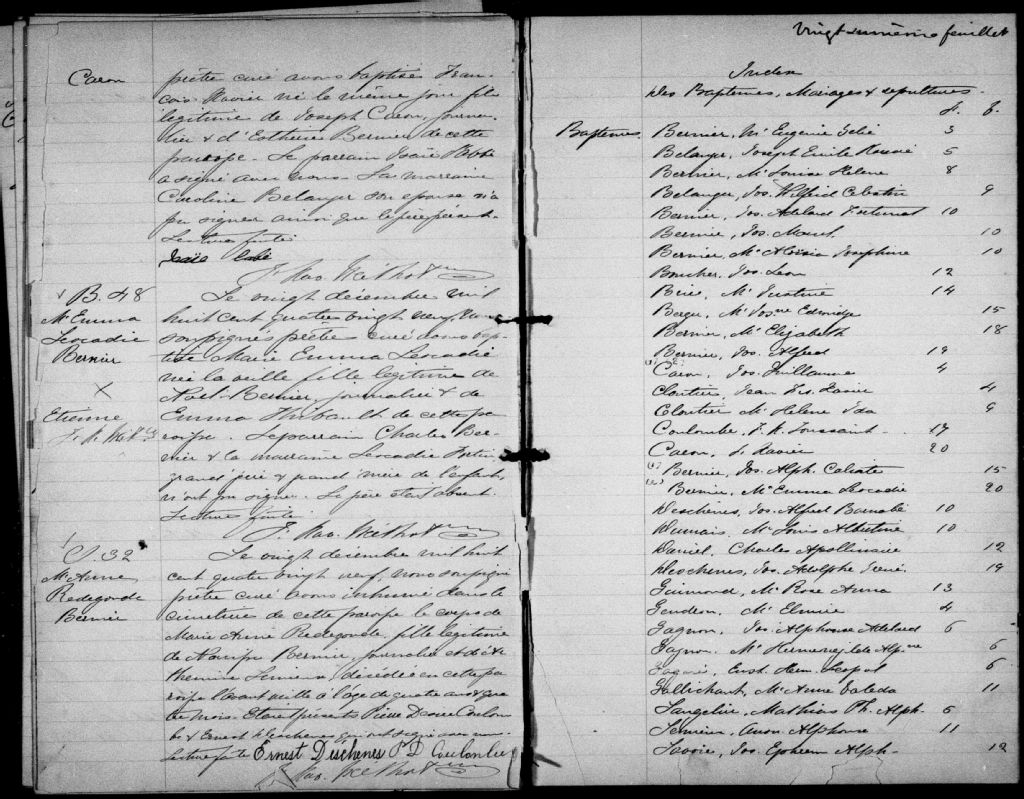 Caron
prêtre curé avons baptisé Fran-
çois Xavier né le même jour fils
légitime de Joseph Caron, journa-
lier & d'Esther Bernier de cette
paroisse. Le parrain Isaïe
a signé avec nous. La marraine
Caroline Belanger son épouse n'a
pu signer ainsi que le père présent.
Lecture faite
F. Xav. Méthot
B. 48
M. Emma
Leocadie
Bernier
X
Etienne
Le vingt décembre mil
huit cent quatre vingt neuf, nous
soussignés prêtre curé avons bap-
tisé Marie Emma Leocadie
née la veille fille légitime de
Noel Bernier, journalier & de
Emma Thibault de cette pa
roisse. Le parrain Charles Ber-
nier & la marraine Leocadie Fortin
grand père & grand'mère de l'enfant,
n'ont pu signer. Le père était absent.
Lecture faite
F. Xav. Méthot
S. 32
M. Anne
Redegonde
Bernier
Le vingt décembre mil huit
cent quatre vingt neuf, nous soussigné
prêtre curé avons inhumé dans le
cimetière de cette paroisse le corps de
Marie Anne Redegonde, fille légitime
de Narcisse Bernier, journalier et d'
décédée en cette pa
roisse l'avant veille à l'âge de quatre ans & qua
tre mois. Etaient présents Pierre Coulom
be & Ernest Deschenes qui ont signé avec nous
Lecture faite Ernest Deschenes P D Coulombe
F. Xav. Méthot
Vingt feuillet
Index
des Baptemes, Mariages & sepultures
f. f.
Baptemes
Bernier, M. Eugenie 3
Belanger, Joseph Emile 5
Bernier, M. Louise Helene 8
Belanger, Jos. Wilfrid Celestin 9
Bernier, Jos. Adelard Fortunat 10
Bernier, Jos. 10
Bernier, M. Aloïsia Josephine 10
Boucher, Jos. Leon 12
M. Justine 14
M. Edwidge 15
Bernier, M. Elizabeth 18
Bernier, Jos. Alfred 19
Caron, Jos. Guillaume 4
Cloutier, Jean Frs. Xavier 4
Cloutier M. Helene Ida 9
Coulombe, F. X. Toussaint 17
Caron, F. Xavier 20
Bernier, Jos. Alph. Calixte 15
Bernier, M. Emma Leocadie 20
Deschènes, Jos. Alfred Barnabé 10
Dumais, M. Louis Albertine 10
Daniel, Charles Apollinaire 12
Deschenes, Jos. Adolphe 19
Guimond, M. Rose Anna 13
Gendron, M. Elmire 4
Gagnon, Jos. Alphonse Adelard 6
Gagnon, M. Hermenegilde 6
Gagné, Eust. Hem. Leopol 6
Gallichant, M. Anne Valeda 11
Langelier, Mathias Ph. Alph. 5
Lemieux, Alphonse 11
Savoie, Jos. Ephrem Alph. 12